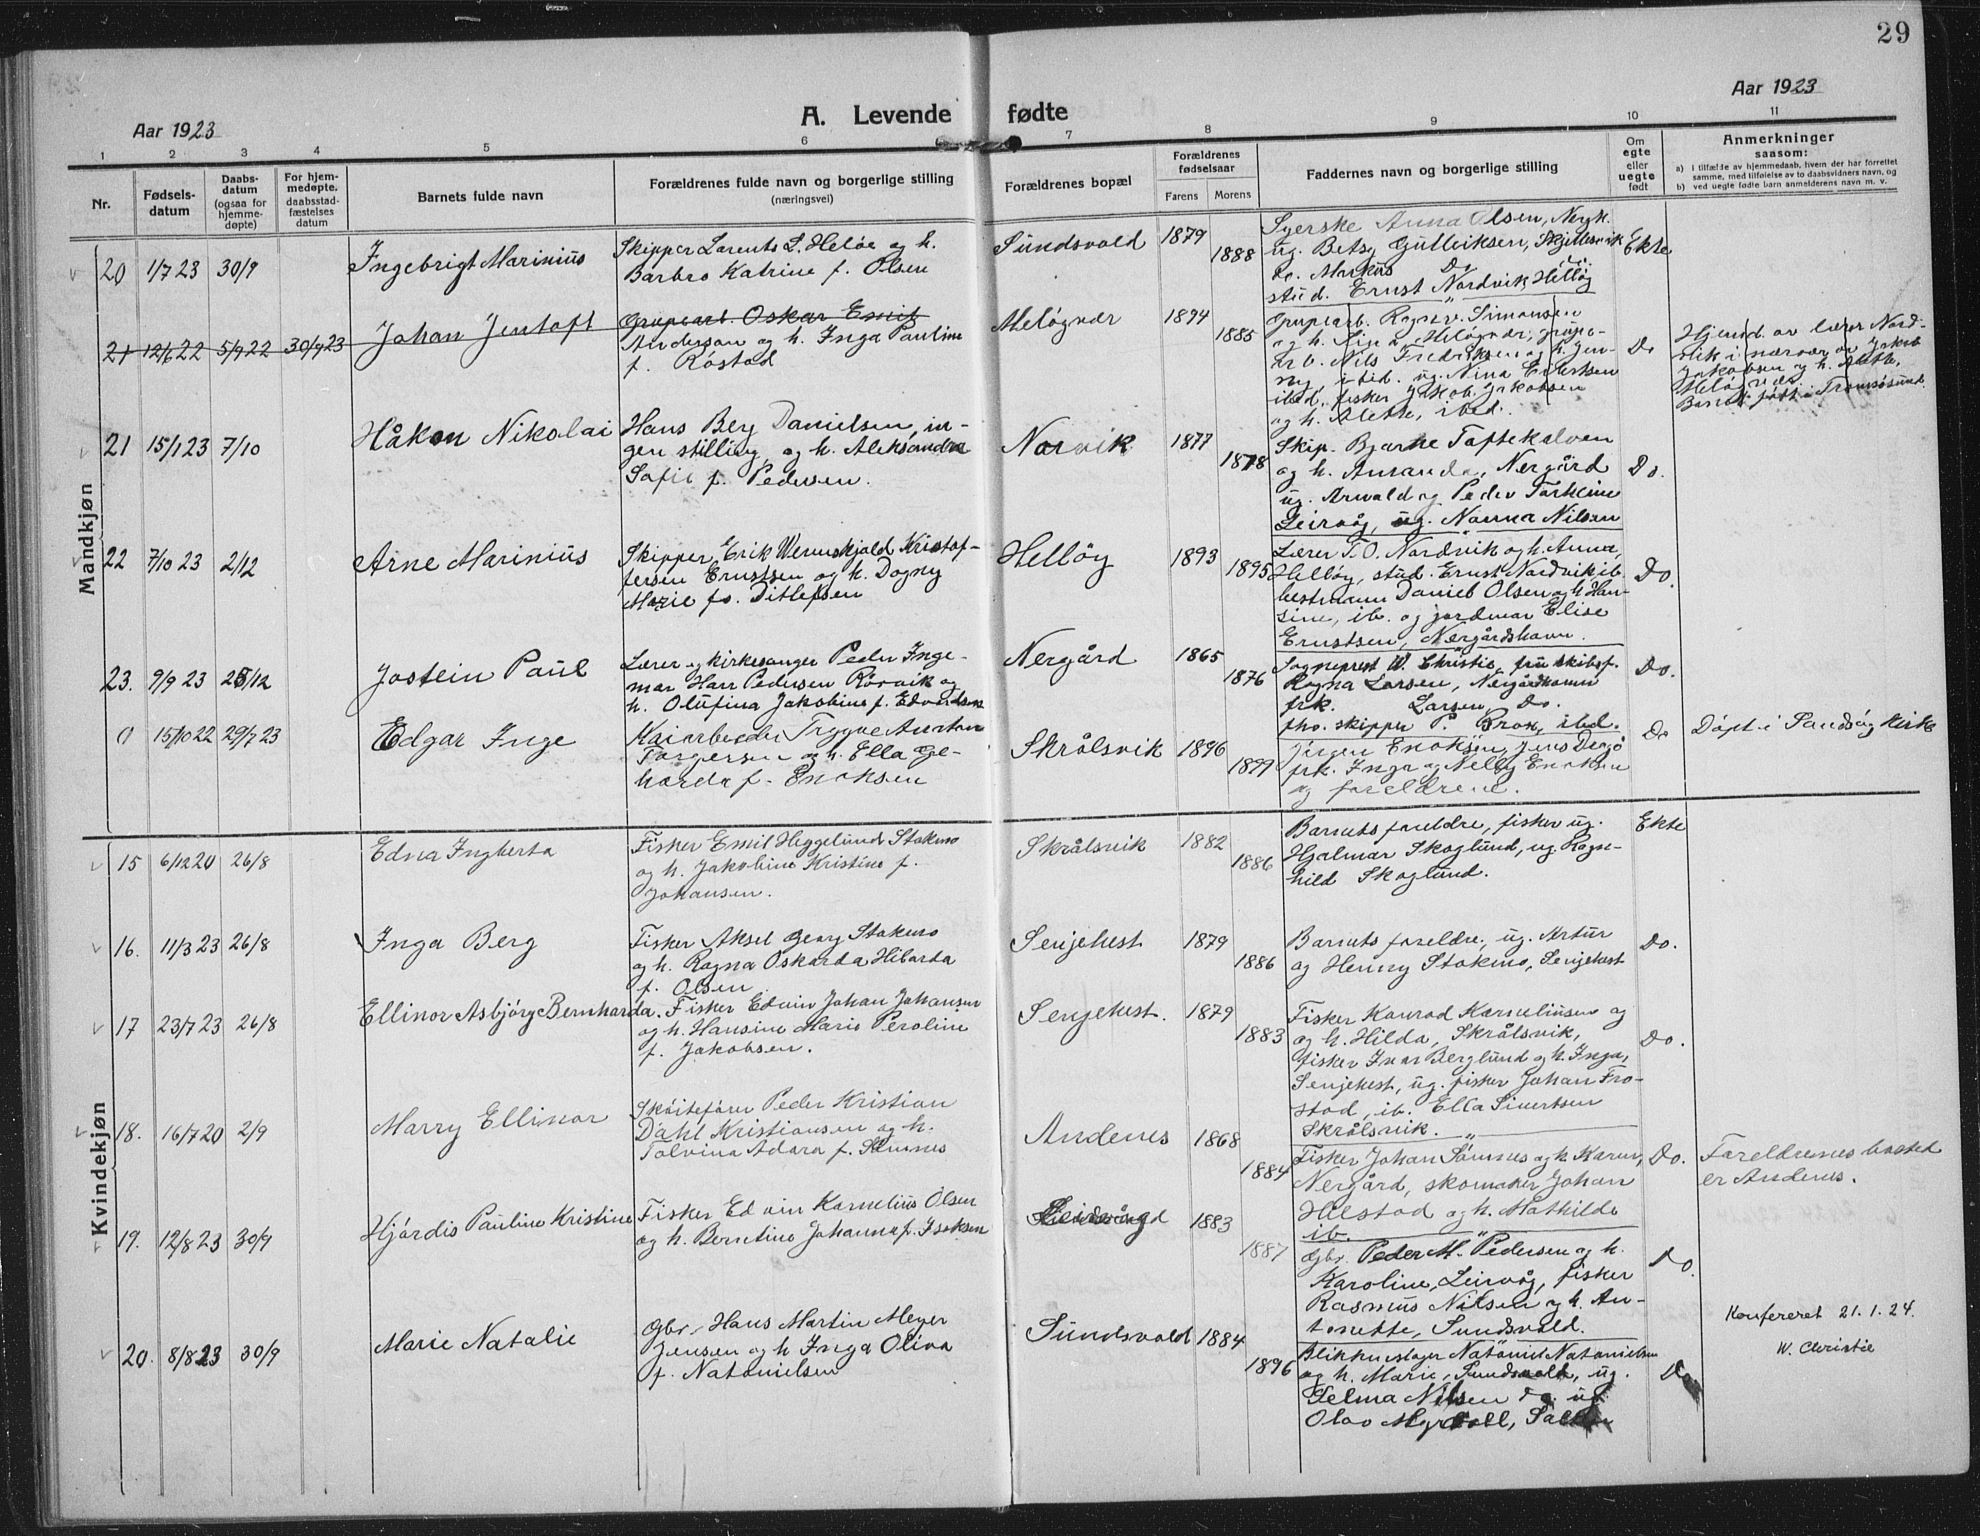 29
Aar 1923
A. Levende fødte
Aar 1923
1 2 3 4 5 6 7 8 9 10 11
Nr.
Fødsels-
datum
Daabs-
datum
(ogsaa for
hjemme-
døpte)
For hjem-
medøpte,
daabsstad-
fæstelses
datum
Barnets fulde navn
Forældrenes fulde navn og borgerlige stilling
(næringsvei)
Forældrenes bopæl
Forældrenes
fødselsaar
Farens Morens
Faddernes navn og borgerlige stilling
Om
egte
eller
uegte
født
Anmerkninger
saasom:
a) i tilfælde av hjemmedaab, hvem der har forrettet
samme, med tilføielse av to daabsvidners navn, og
b) ved uegte fødte barn anmelderens navn m. v.
Mandkjøn
20 1/7 23 30/9
Ingebrigt Marinius
Skipper Lorents L. Heløe og h.
Barbro Katrine f. Olsen
Sundsvold
1879
1888
Syerske Anna Olsen,
ug. Betsy Gulleiksen, Skjellesvik
Do. Markus Do
stud. Ernst Nordvik Helløy
Ekte
21 12/6 22 5/9 22 30/9 23
Johan Jentoft
Grupearb. Oskar Emil
Anderson og h. Inga Pauline
f. Røstad
Meløyvær
1894
1885
Grupearb. Ragnv. Simonsen
og h.
Nils Fredriksen og h. Jen-
ny, ibid. ug. Nina
ibid. fisker Jakob Jakobsen
og h. Alette, ibid.
Do
Hjemd. av lærer Nord-
vik i nærvær av Jakob
Jakobsen og h. Alette,
Barnet født i Tromsøsund.
21 15/1 23 7/10
Håkon Nikolai
Hans Berg Danielsen, in-
gen stilling, og h. Aleksandra
Sofie f. Pedersen.
Norvik
1877
1878
Skip. Bjarne Toftekalven
og h. Amanda, Nergård
ug. Arwald og Peder Torheim
Leirvåg, ug. Nanna Nilsen
Do.
22 7/10 23 2/12
Arne Marinius
Skipper Erik Wernskjold Kristof-
fersen Ernstsen og h. Dagny
Marie fo. Ditlefsen
Helløy
1893
1895
Lærer T. O. Nordvik og h. Anna,
Helløy, stud. Ernst Nordvik, ib.
bestmann Daniel Olsen og h. Han-
sine, ib. og jordmor Elise
Ernstsen, Nergårdshavn.
Do.
23. 9/9 23 25/12
Jostein Paul
Lærer og kirkesanger Peder Inge-
mar Harr Pedersen Rørvik og
h. Olufina Jakobine f. Edvardsen
Nergård
1865
1876
Sogneprest W. Christie, fru skibsf.
Ragna Larsen, Nergårdhamn
frk. Larsen, Do.
fho. skipper P. Brox, ibd.
Do.
0 15/10 22 29/7 23
Edgar Inge
Kaiarbeider Trygve Anatan
Torgersen og h. Ella Ge-
harda f. Enoksen
Skrålsvik
1896
1899
Jørgen Enoksen, Jens
frk. Inga og Nelly Enoksen
og foreldrene.
Do
Døpt i Sandsøy kirke
Kvindekjøn
15 6/12 20 26/8
Edna Ingberta
Fisker Emil Heggelund Stokmo
og h. Jakobine Kristine f.
Johansen.
Skrålsvik
1882
1886
Barnets foreldre, fisker ug.
Hjalmar Skoglund, ug. Ragn-
hild Skoglund.
Ekte
16. 11/3 23 26/8
Inga Berg
Fisker Aksel Georg Stokmo
og h. Ragna Oskarda Hibarda
f. Olsen
Senjehest
1879
1886
Barnets foreldre, ug. Artur
og Henny Stokmo, Senjehest
Do.
17 23/7 23 26/8
Ellinor Asbjørg Bernharda.
Fisker Edvin Johan Johansen
og h. Hansine Marie Peroline
f. Jakobsen.
Senjehest.
1879
1883
Fisker Konrad Kornelius​en og
og h. Hilda, Skrålsvik,
fisker Ivar Berglund og h. Inga,
Senjehest, ug. fisker Johan Fro-
stad, ib. Ella Sivertsen
Skrålsvik.
Do.
18. 16/7 20 2/9
Marry Ellinor
Skøitefører Peder Kristian
Dahl Kristiansen og h.
Tolvina Adara f. Sømnes
Andenes
1868
1884
Fisker Johan Sømnes og h. Karen,
Nergård, skomaker Johan
Hilstad og h. Mathilde
ib.
Do.
Foreldrenes bosted
er Andenes.
19. 12/8 23 30/9
Hjørdis Pauline Kristine
Fisker Edvin Kornelius Olsen
og h. Berntine Johanna f. Isaksen
1883
1887
Gbr. Peder M. Pedersen og h.
Karoline, Leirvåg, fisker
Rasmus Nilsen og h. An-
tonette, Sundsvold.
Do.
20. 8/8 23 30/9
Marie Natalie
Gbr. Hans Martin Meyer
Jensen og h Inga Oliva
f. Natanielsen
Sundsvold
1884
1896
Blikkenslager Nataniel Natanielsen
og h. Marie, Sundsvold, ug.
Selma Nilsen do. ug.
Olav Myrvoll,
Do
Konfereret 21.1.24.
W. Christie